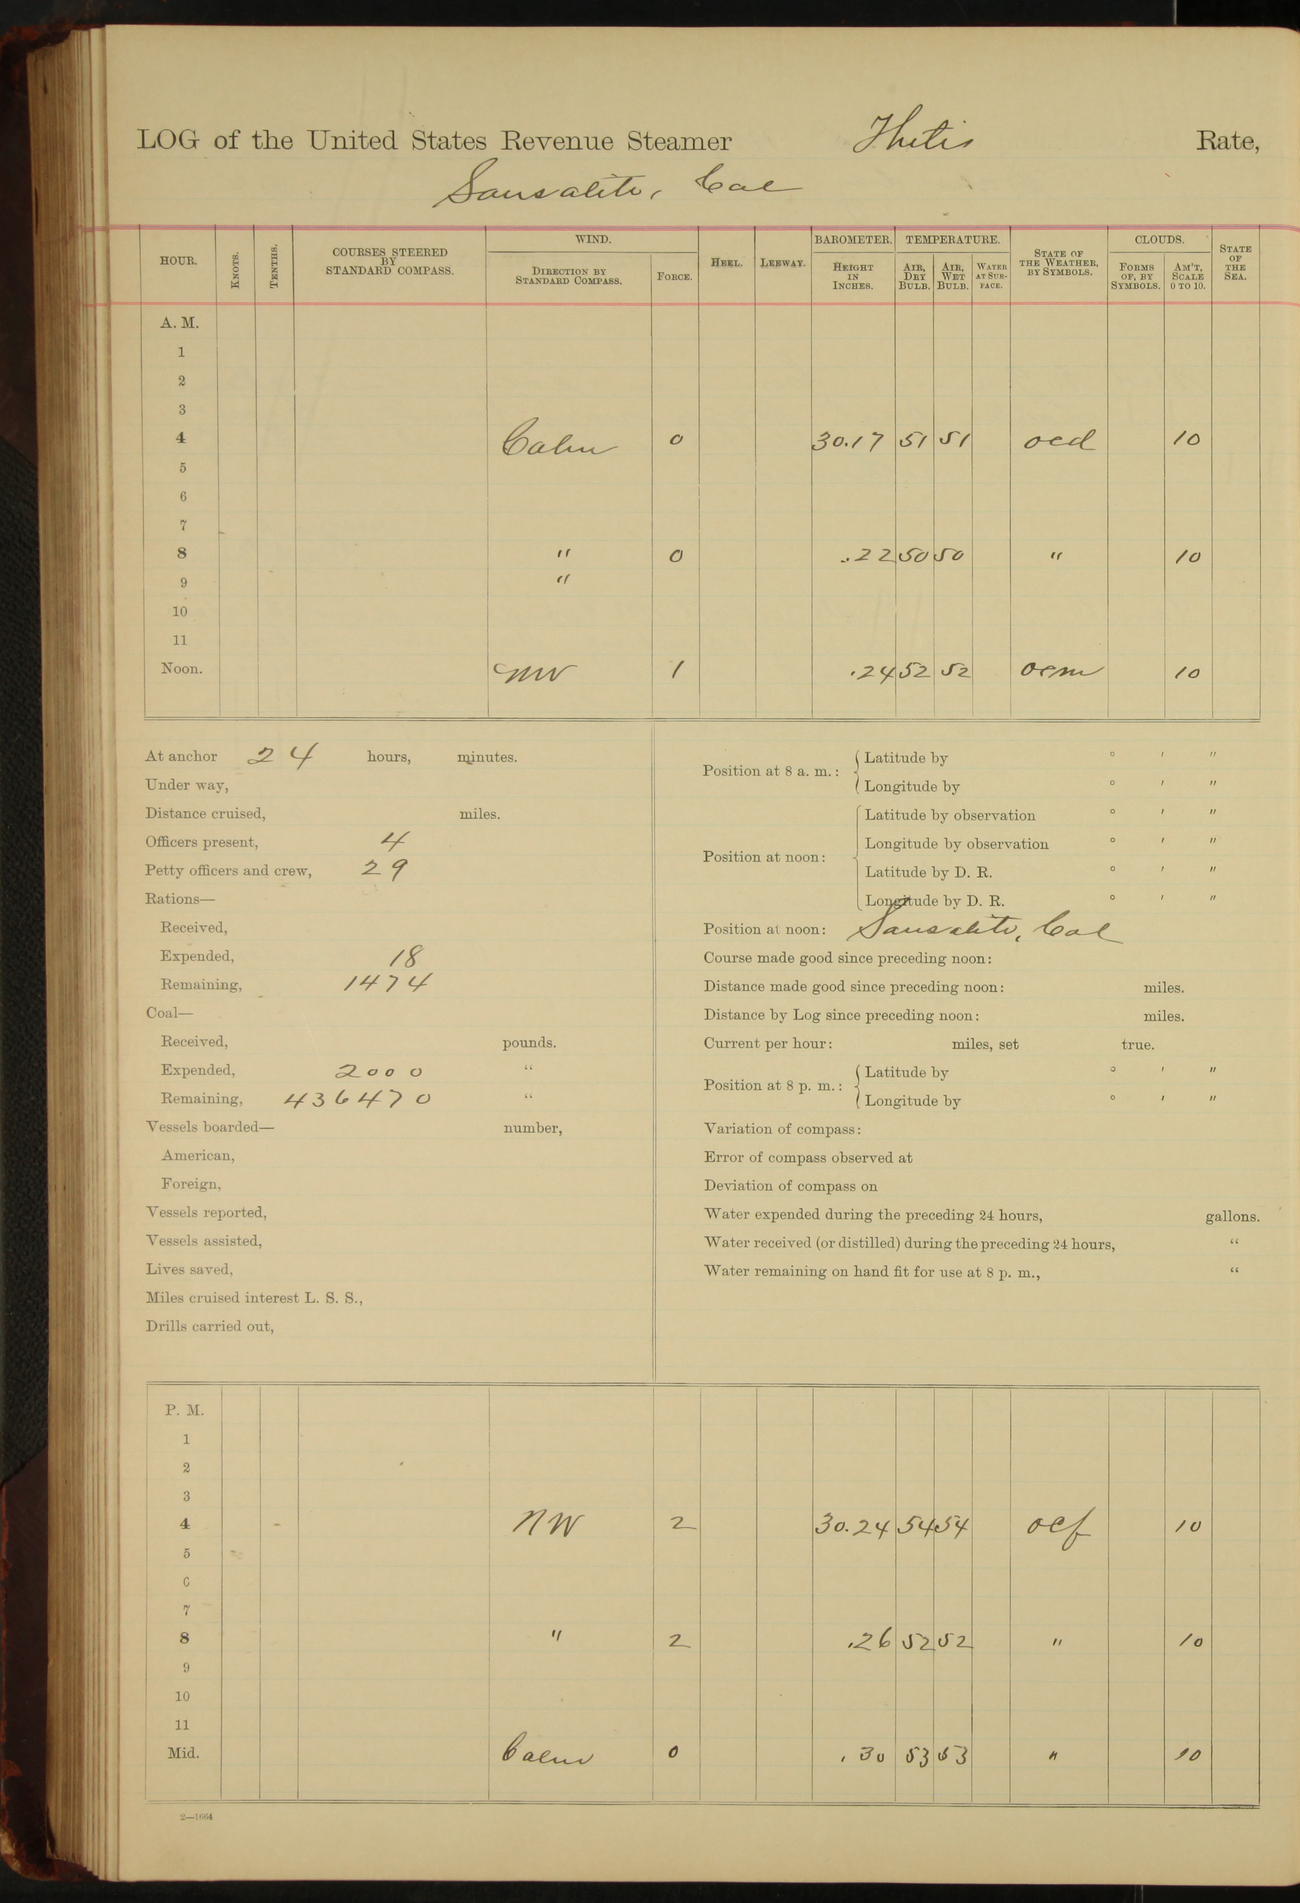 LOG of the United States Revenue Steamer Thetis Rate,
Sausalito, Cal
HOUR. KNOTS. TENTHS. COURSES STEERED BY STANDARD COMPASS. WIND. HEEL. LEEWAY. BAROMETER. TEMPERATURE. STATE OF THE WEATHER, BY SYMBOLS. CLOUDS. STATE OF THE SEA.
DIRECTION BY STANDARD COMPASS. FORCE. HEIGHT IN INCHES. AIR, DRY BULB. AIR, WET BULB. WATER AT SURFACE. FORMS OF, BY SYMBOLS. AM'T, SCALE 0 TO 10.
A. M.
1
2
3
4 Calm 0 30.17 51 51 ocd 10
5
6
7
8 " 0 .22 50 50 " 10
9 "
10
11
Noon. NW 1 .24 52 52 ocm 10
At anchor 24 hours, minutes.
Under way,
Distance cruised, miles.
Officers present, 4
Petty officers and crew, 29
Rations—
Received,
Expended, 18
Remaining, 1474
Coal—
Received, pounds.
Expended, 2000 "
Remaining, 436470 "
Vessels boarded— number,
American,
Foreign,
Vessels reported,
Vessels assisted,
Lives saved,
Miles cruised interest L. S. S.,
Drills carried out,
Position at 8 a. m.: Latitude by ° ′ ″
Longitude by ° ′ ″
Position at noon: Latitude by observation ° ′ ″
Longitude by observation ° ′ ″
Latitude by D. R. ° ′ ″
Longitude by D. R. ° ′ ″
Position at noon: Sausalito, Cal
Course made good since preceding noon:
Distance made good since preceding noon: miles.
Distance by Log since preceding noon: miles.
Current per hour: miles, set true.
Position at 8 p. m.: Latitude by ° ′ ″
Longitude by ° ′ ″
Variation of compass:
Error of compass observed at
Deviation of compass on
Water expended during the preceding 24 hours, gallons.
Water received (or distilled) during the preceding 24 hours, "
Water remaining on hand fit for use at 8 p. m., "
P. M.
1
2
3
4 NW 2 30.24 54 54 ocf 10
5
6
7
8 " 2 .26 52 52 " 10
9
10
11
Mid. Calm 0 .30 53 53 " 10
2—1664